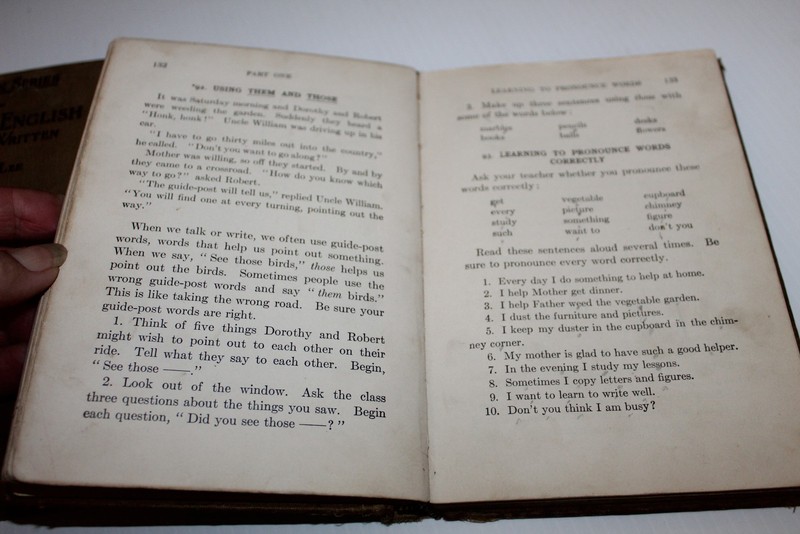 SERIES
ENGLISH
WRITTEN
LEE
152
PART ONE
92. USING THEM AND THOSE
It was Saturday morning and Dorothy and Robert
were weeding the garden. Suddenly they heard a
"Honk, honk!" Uncle William was driving up in his
car.
"I have to go thirty miles out into the country,"
he called. "Don't you want to go along?"
Mother was willing, so off they started. By and by
they came to a crossroad. "How do you know which
way to go?" asked Robert.
"The guide-post will tell us," replied Uncle William.
"You will find one at every turning, pointing out the
way."
When we talk or write, we often use guide-post
words, words that help us point out something.
When we say, "See those birds," those helps us
point out the birds. Sometimes people use the
wrong guide-post words and say "them birds."
This is like taking the wrong road. Be sure your
guide-post words are right.
1. Think of five things Dorothy and Robert
might wish to point out to each other on their
ride. Tell what they say to each other. Begin,
"See those ——."
2. Look out of the window. Ask the class
three questions about the things you saw. Begin
each question, "Did you see those ——?"
LEARNING TO PRONOUNCE WORDS 153
3. Make up three sentences using those with
some of the words below:
pencils desks
books balls flowers
93. LEARNING TO PRONOUNCE WORDS
CORRECTLY
Ask your teacher whether you pronounce these
words correctly:
get vegetable cupboard
every picture chimney
study something figure
such want to don't you
Read these sentences aloud several times. Be
sure to pronounce every word correctly.
1. Every day I do something to help at home.
2. I help Mother get dinner.
3. I help Father weed the vegetable garden.
4. I dust the furniture and pictures.
5. I keep my duster in the cupboard in the chim-
ney corner.
6. My mother is glad to have such a good helper.
7. In the evening I study my lessons.
8. Sometimes I copy letters and figures.
9. I want to learn to write well.
10. Don't you think I am busy?